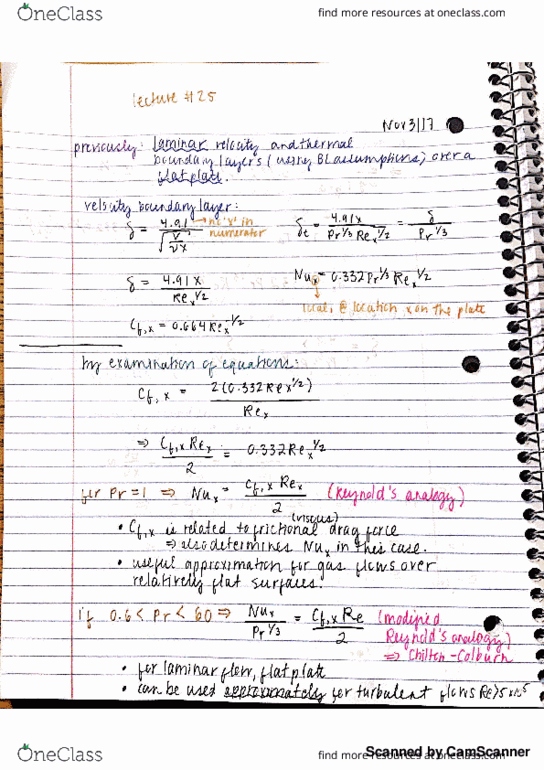 OneClass
find more resources at oneclass.com
lecture #25
Nov 3/17
previously: laminar velocity and thermal
boundary layers (using BL assumptions) over a
flat plate.
velocity boundary layer:
δ = 4.91 / √(V/νx) → no 'x' in numerator
δt = 4.91x / (Pr^1/3 Rex^1/2) = δ / Pr^1/3
δ = 4.91x / Rex^1/2
Nux = 0.332 Pr^1/3 Rex^1/2
local, @ location x on the plate
Cf,x = 0.664 Rex^-1/2
by examination of equations:
Cf,x = 2(0.332 Rex^1/2) / Rex
⇒ Cf,x Rex / 2 = 0.332 Rex^1/2
for Pr=1 ⇒ Nux = Cf,x Rex / 2 (Reynold's analogy)
• Cf,x is related to frictional (viscous) drag force
⇒ also determines Nux in this case.
• useful approximation for gas flows over
relatively flat surfaces.
if 0.6 < Pr < 60 ⇒ Nux / Pr^1/3 = Cf,x Re / 2 (modified Reynold's analogy)
⇒ Chilton-Colburn
• for laminar flow, flat plate
• can be used approximately for turbulent flows
Scanned by CamScanner
OneClass
find more resources at oneclass.com